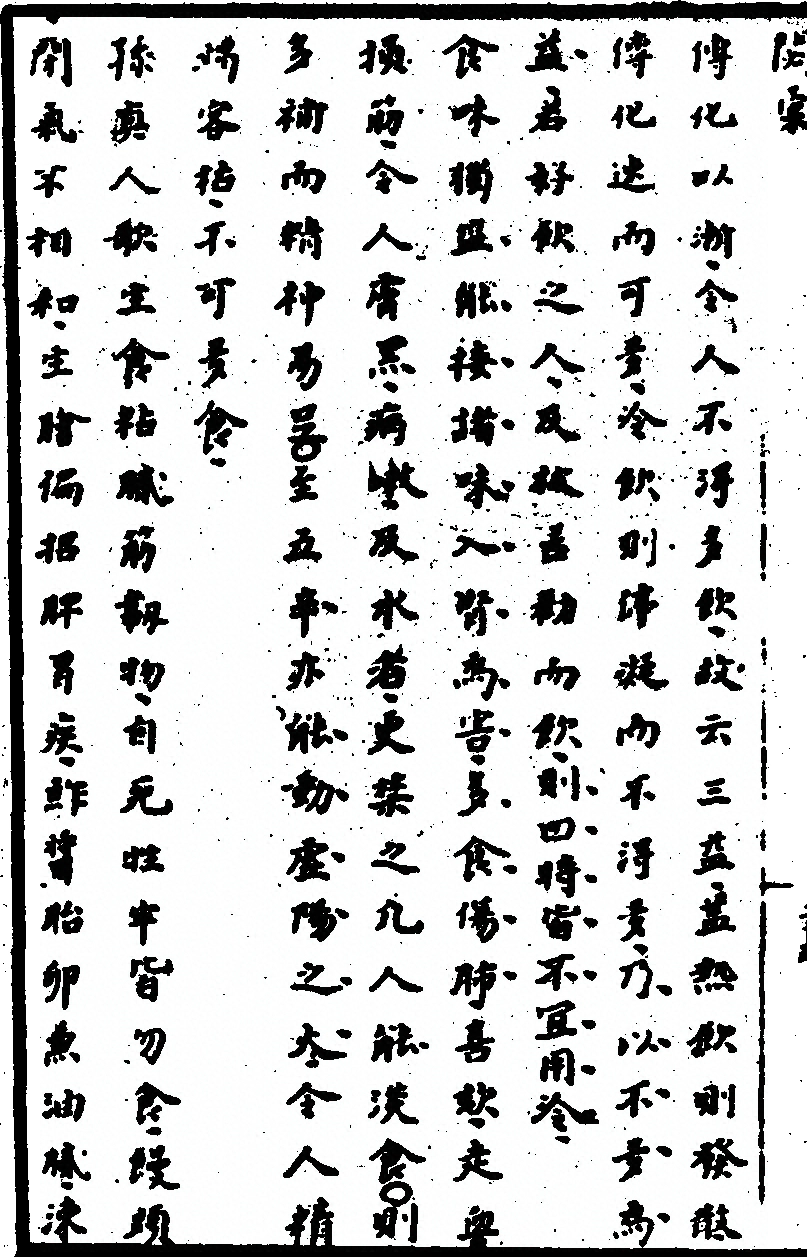 傳化以漸令人不得多飲故云三益蓋熱飲則發散
傳化速而可多冷飲則凝而不得多乃以不多為
益若好飲之人及被苦勸而飲則四時皆不宜用冷
食味獨盬能接措味入腎為嗜多食傷肺喜欬走血
損筋令人膚黑病嗽及水者更禁之凡人能淡食則
多補而精神易至五辛亦能動虛陽之火令人精
客枯不可多食
孫真人歌生食粘膩筋韌物自死牲牢皆勿食饅頭
閉氣不相和生膾偏招脾胃疾鮓醬胎卵兼油膩